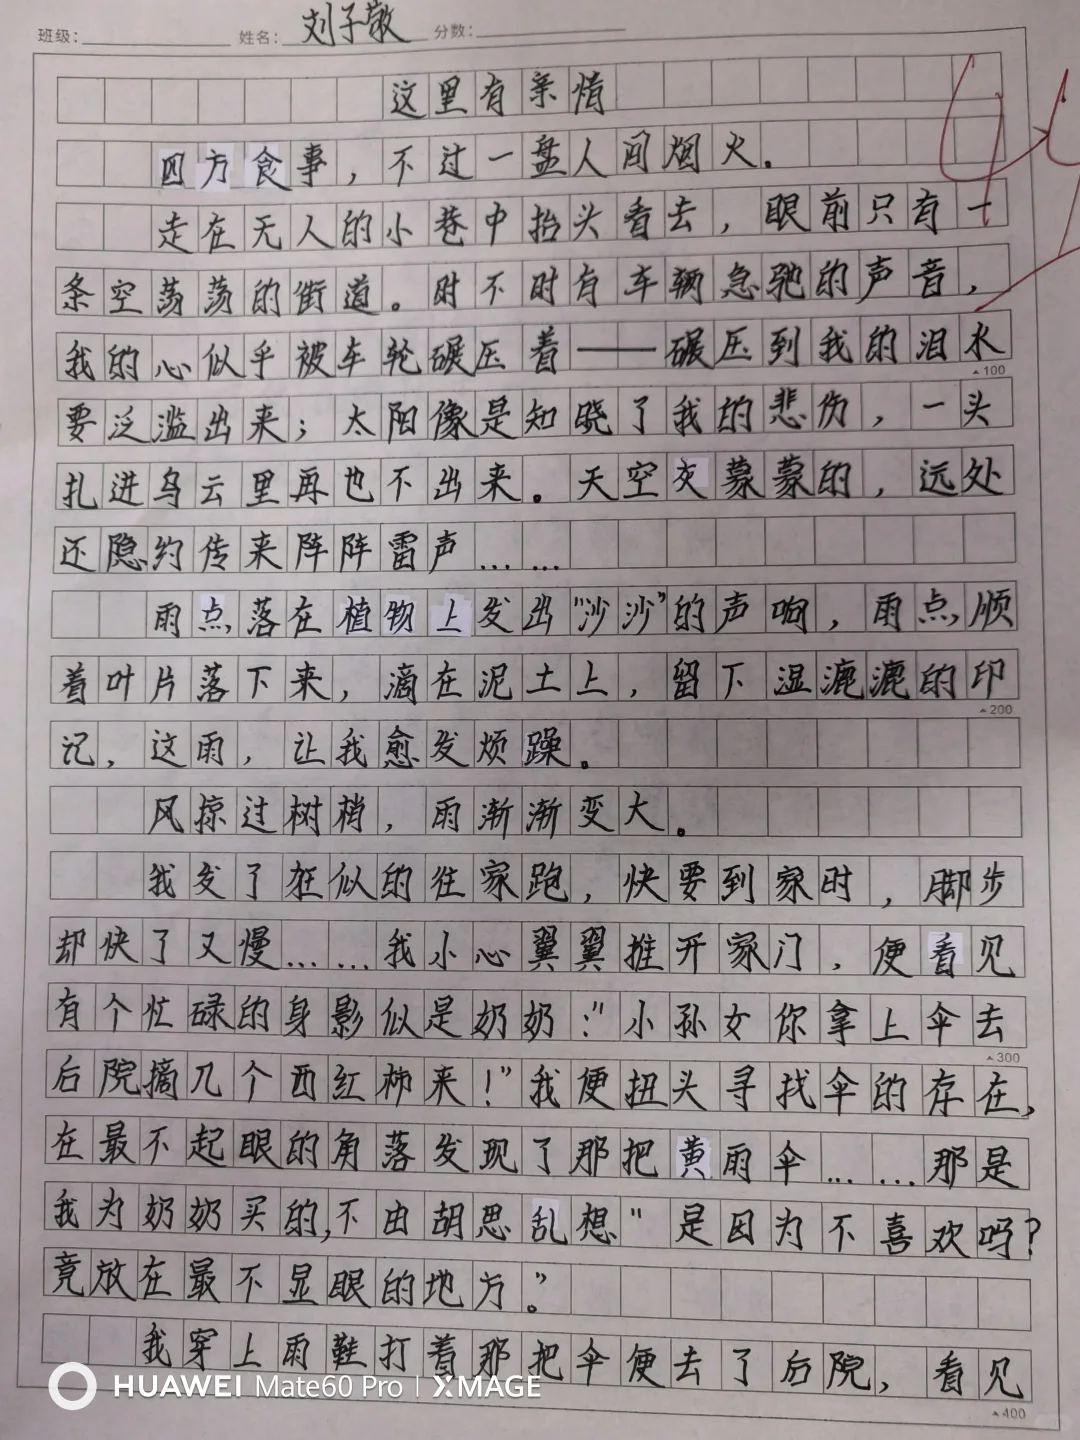 班级： 姓名： 刘子敬 分数：
这里有亲情
四方食事，不过一盘人间烟火。
走在无人的小巷中抬头看去，眼前只有一
条空荡荡的街道。时不时有车辆急驰的声音，
我的心似乎被车轮碾压着——碾压到我的泪水
▲100
要泛滥出来；太阳像是知晓了我的悲伤，一头
扎进乌云里再也不出来。天空灰蒙蒙的，远处
还隐约传来阵阵雷声……
雨点落在植物上发出“沙沙”的声响，雨点顺
着叶片落下来，滴在泥土上，留下湿漉漉的印
▲200
记，这雨，让我愈发烦躁。
风掠过树梢，雨渐渐变大。
我发了狂似的往家跑，快要到家时，脚步
却快了又慢……我小心翼翼推开家门，便看见
有个忙碌的身影似是奶奶：“小孙女你拿上伞去
▲300
后院摘几个西红柿来！”我便扭头寻找伞的存在，
在最不起眼的角落发现了那把黄雨伞……那是
我为奶奶买的，不由胡思乱想“是因为不喜欢吗？
竟放在最不显眼的地方。”
我穿上雨鞋打着那把伞便去了后院，看见
▲400
HUAWEI Mate60 Pro | XMAGE